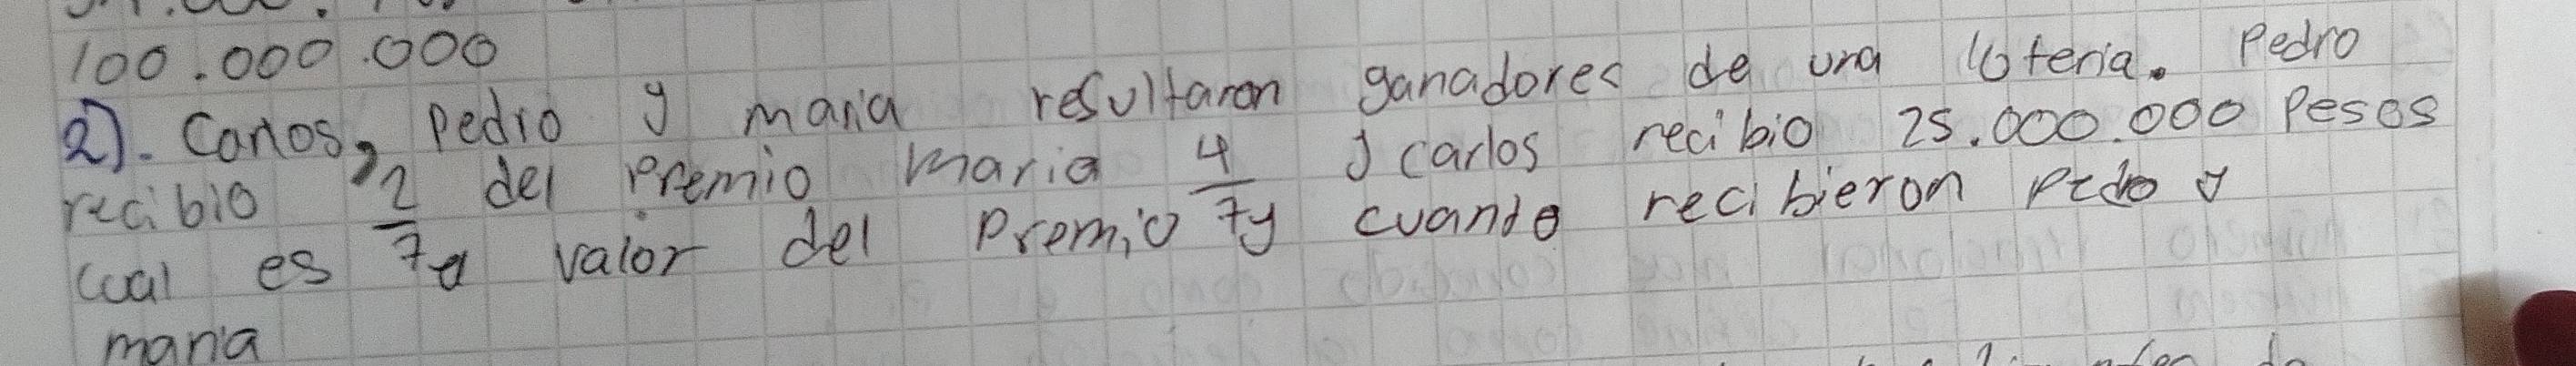 100.000.000
2). Carlos, Pedro y maria resultaron ganadores de una loteria. Pedro
recibio 2/7 del premio maria 4/7 y carlos recibio 25.000.000 Pesos
cual es el valor del premio y cuanto recibieron Pedo y
maria